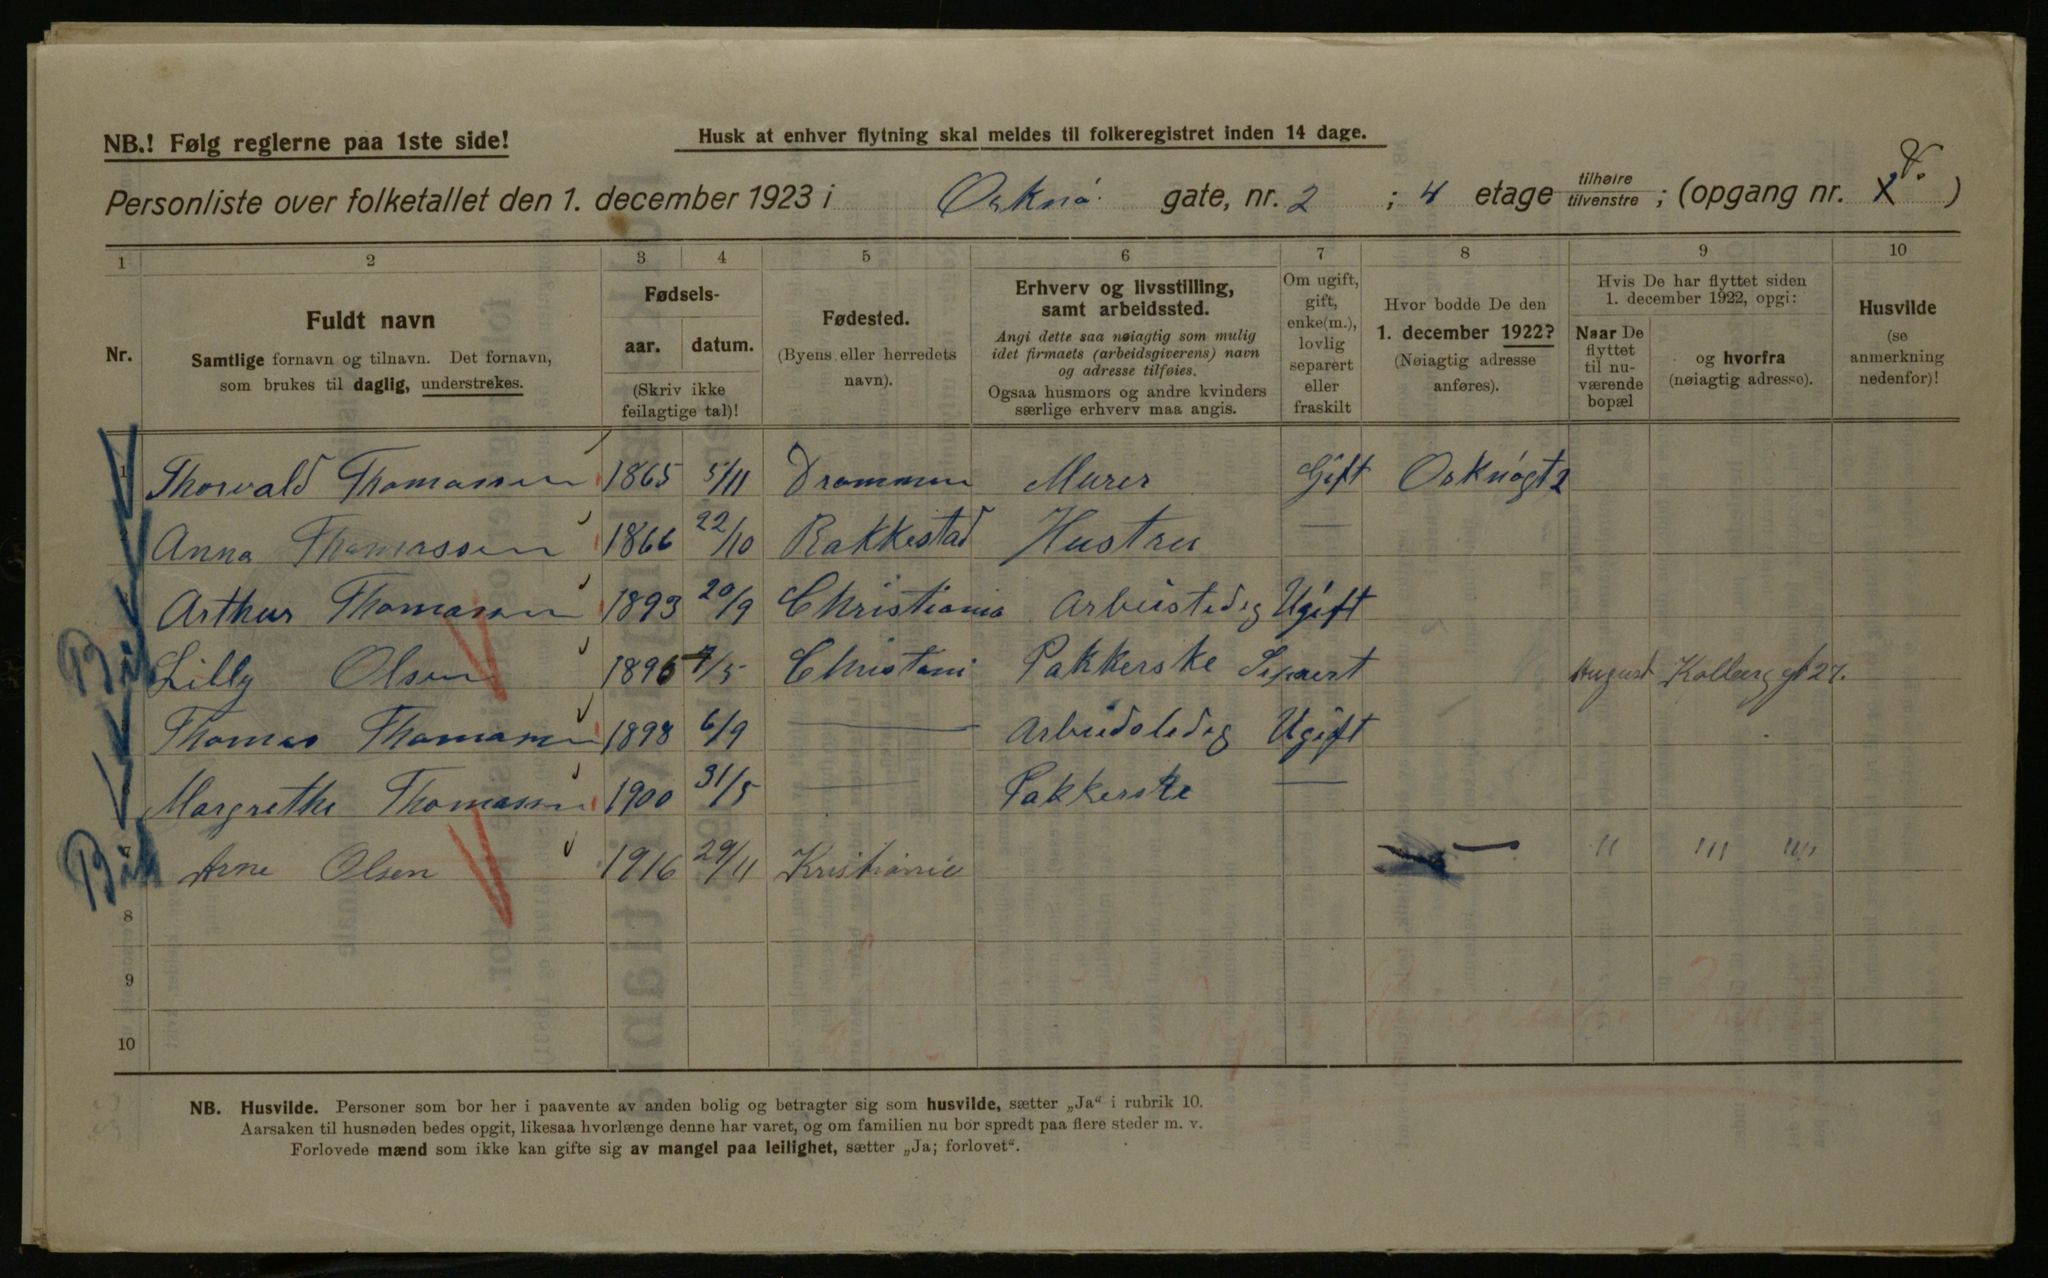 NB.! Følg reglerne paa 1ste side!
Husk at enhver flytning skal meldes til folkeregistret inden 14 dage.
Personliste over folketallet den 1. december 1923 i Orknø gate, nr. 2 ; 4 etage tilhøire tilvenstre ; (opgang nr. V. )
1 2 3 4 5 6 7 8 9 10
Nr.
Fuldt navn
Samtlige fornavn og tilnavn. Det fornavn,
som brukes til daglig, understrekes.
Fødsels-
aar. datum.
(Skriv ikke
feilagtige tal)!
Fødested.
(Byens eller herredets
navn).
Erhverv og livsstilling,
samt arbeidssted.
Angi dette saa nøiagtig som mulig
idet firmaets (arbeidsgiverens) navn
og adresse tilføies.
Ogsaa husmors og andre kvinders
særlige erhverv maa angis.
Om ugift,
gift,
enke(m.),
lovlig
separert
eller
fraskilt
Hvor bodde De den
1. december 1922?
(Nøiagtig adresse
anføres).
Hvis De har flyttet siden
1. december 1922, opgi:
Naar De
flyttet
til nu-
værende
bopæl
og hvorfra
(nøiagtig adresse).
Husvilde
(se
anmerkning
nedenfor)!
1 Thorvald Thomassen 1865 5/11 Drammen Murer Gift Orknøgt 2
Anna Thomassen 1866 22/10 Rakkestad Hustru —
Arthur Thomassen 1893 20/9 Christiania Arbeisledig Ugift
Lilly Olsen 1896 7/5 Christani Pakkerske Sepaert August Kolberggt 27.
Thomas Thomasen 1898 6/9 — Arbeidsledig Ugift
Margrethe Thomassen 1900 31/5 — Pakkerske —
7 Arne Olsen 1916 29/11 Kristiania — " "' "'
8
9
10
NB. Husvilde. Personer som bor her i paavente av anden bolig og betragter sig som husvilde, sætter „Ja“ i rubrik 10.
Aarsaken til husnøden bedes opgit, likesaa hvorlænge denne har varet, og om familien nu bor spredt paa flere steder m. v.
Forlovede mænd som ikke kan gifte sig av mangel paa leilighet, sætter „Ja; forlovet“.